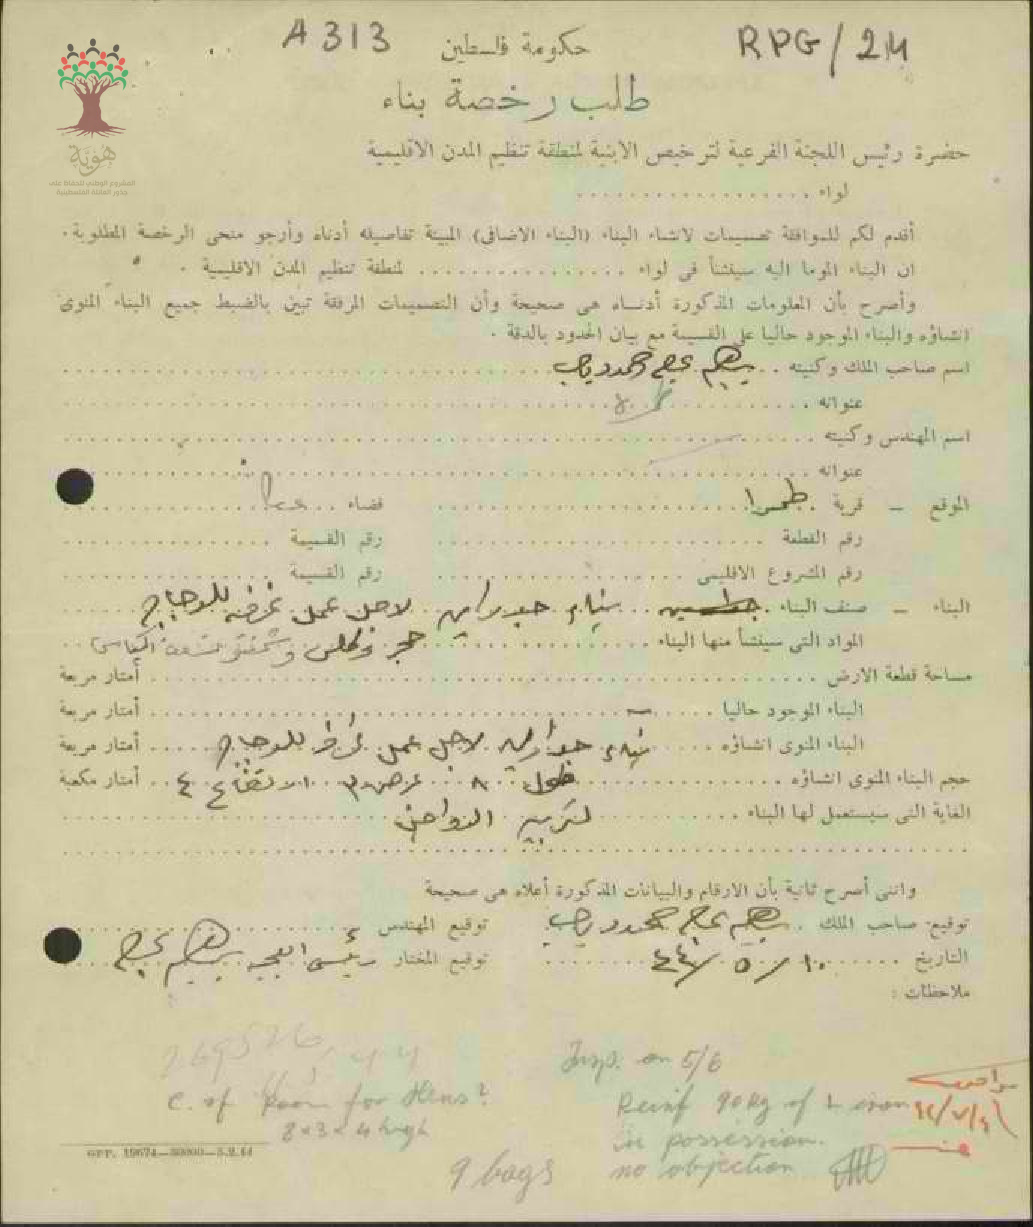 A 313
حكومة فلسطين
RPG/24
طلب رخصة بناء
هوية
المشروع الوطني للحفاظ على
جذور العائلة الفلسطينية
حضرة رئيس اللجنة الفرعية لترخيص الابنية لمنطقة تنظيم المدن الاقليمية
لواء
أقدم لكم للموافقة تصميمات لانشاء البناء (البناء الاضافى) المبينة تفاصيله أدناه وأرجو منحى الرخصة المطلوبة.
ان البناء الموما اليه سينشأ فى لواء لمنطقة تنظيم المدن الاقليمية.
وأصرح بأن المعلومات المذكورة أدناه هى صحيحة وأن التصميمات المرفقة تبين بالضبط جميع البناء المنوى
انشاؤه والبناء الموجود حاليا على القسيمة مع بيان الحدود بالدقة.
اسم صاحب الملك وكنيته
عنوانه
اسم المهندس وكنيته
عنوانه
الموقع — قرية طمرا قضاء عكا
رقم القطعة رقم القسيمة
رقم المشروع الاقليمى رقم القسيمة
البناء — صنف البناء بناء جدران لاجل عمل غرفه للدجاج
المواد التى سينشأ منها البناء حجر وكلس
مساحة قطعة الارض أمتار مربعة
البناء الموجود حاليا — أمتار مربعة
البناء المنوى انشاؤه بناء جدران لاجل عمل للدجاج أمتار مربعة
حجم البناء المنوى انشاؤه طول ٨ عرض ٣ الارتفاع ٤ أمتار مكعبة
الغاية التى سيستعمل لها البناء لتربية الدواجن
واننى أصرح ثانية بأن الارقام والبيانات المذكورة أعلاه هى صحيحة
توقيع صاحب الملك توقيع المهندس
التاريخ ١٠/٥/٤٤ توقيع المختار
ملاحظات:
Insp. on 5/6
C. of Room for Hens?
8x3x4 high
Reinf 90 kg of L iron
in possession.
no objection
9 bags
GPP. 19674—30000—5.2.44